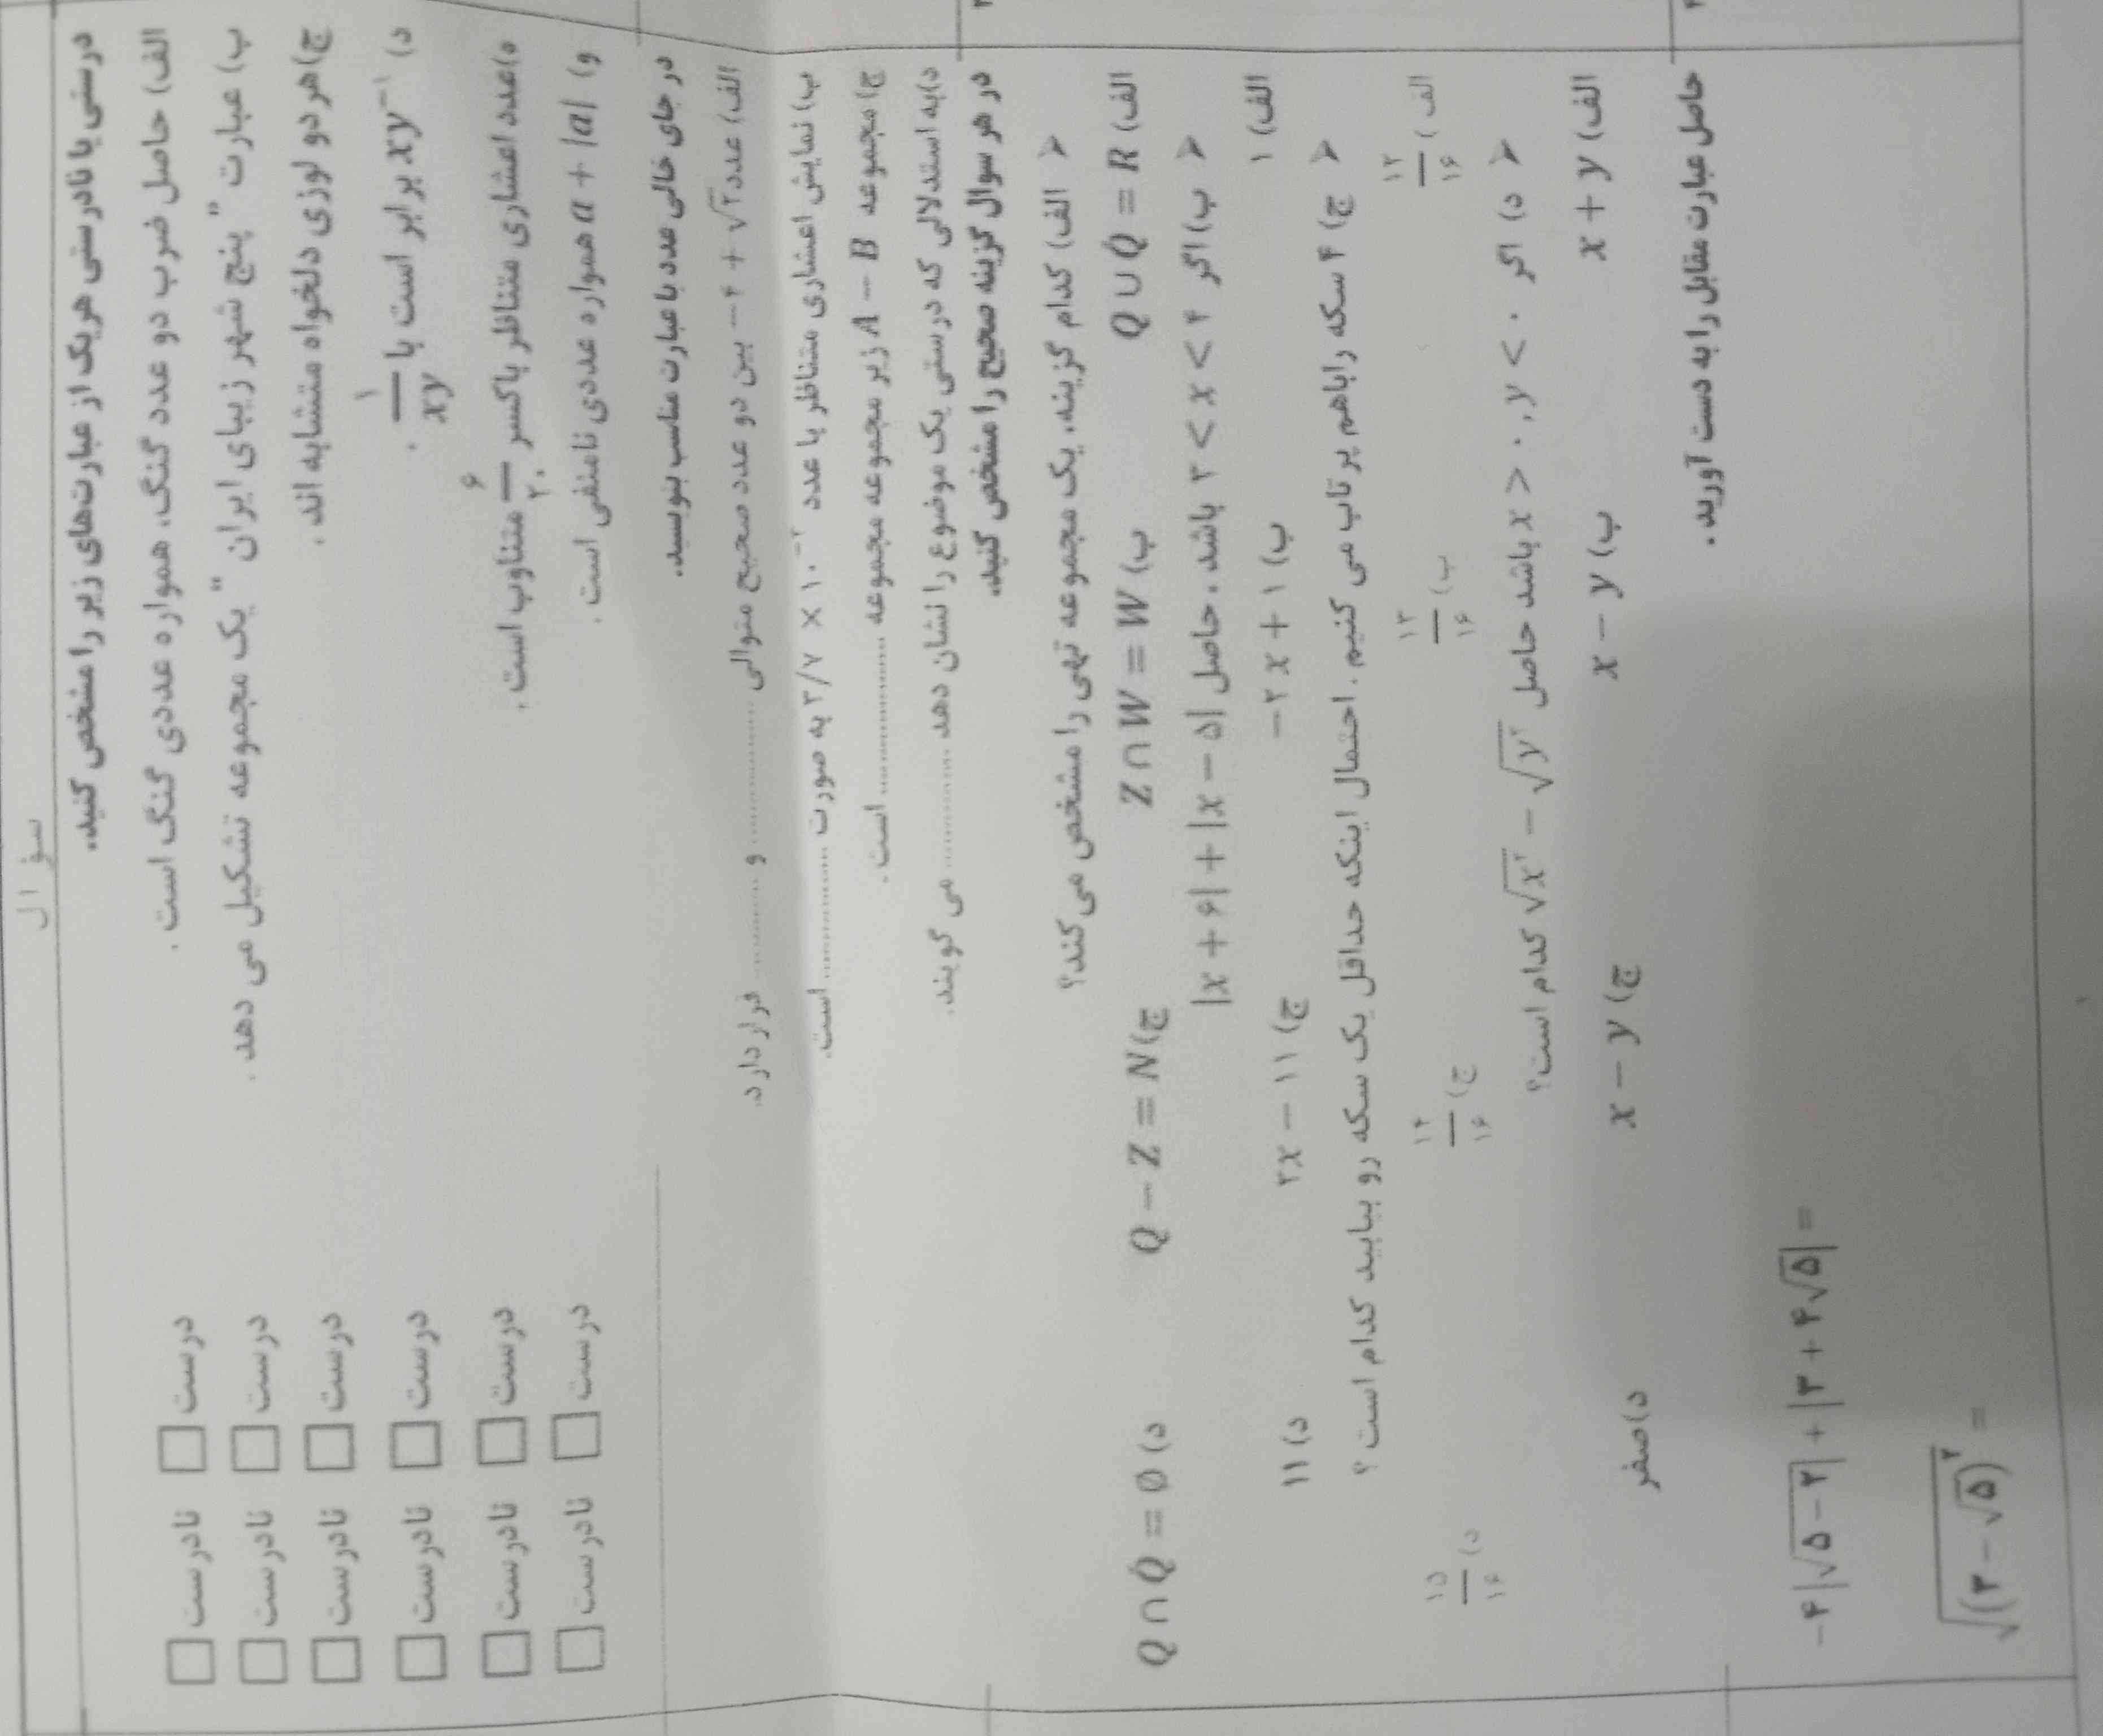 سؤال
درستی یا نادرستی هریک از عبارت‌های زیر را مشخص کنید.
الف) حاصل ضرب دو عدد گنگ، همواره عددی گنگ است. درست □ نادرست □
ب) عبارت "پنج شهر زیبای ایران" یک مجموعه تشکیل می دهد. درست □ نادرست □
ج) هر دو لوزی دلخواه متشابه اند. درست □ نادرست □
د) xy⁻¹ برابر است با ۱/xy. درست □ نادرست □
ه) عدد اعشاری متناظر با کسر ۶/۲۰ متناوب است. درست □ نادرست □
و) a + |a| همواره عددی نامنفی است. درست □ نادرست □
در جای خالی عدد یا عبارت مناسب بنویسید.
الف) عدد −۴ + √۲ بین دو عدد صحیح متوالی ............ و ............ قرار دارد.
ب) نمایش اعشاری متناظر با عدد ۳/۷ × ۱۰⁻² به صورت ............ است.
ج) مجموعه A − B زیر مجموعه مجموعه ............ است.
د) به استدلالی که درستی یک موضوع را نشان دهد ............ می گویند.
در هر سوال گزینه صحیح را مشخص کنید.
➢ الف) کدام گزینه، یک مجموعه تهی را مشخص می کند؟
الف) Q ∪ Q́ = R ب) Z ∩ W = W ج) Q − Z = N د) Q ∩ Q́ = ∅
➢ ب) اگر ۳ < x < ۴ باشد. حاصل |x + ۶| + |x − ۵|
الف) ۱ ب) −۲x + ۱ ج) ۲x − ۱۱ د) ۱۱
➢ ج) ۴ سکه را باهم پرتاب می کنیم. احتمال اینکه حداقل یک سکه رو بیاید کدام است؟
الف) ۱۲/۱۶ ب) ۱۳/۱۶ ج) ۱۴/۱۶ د) ۱۵/۱۶
➢ د) اگر x > ۰, y < ۰ باشد حاصل √x² − √y² کدام است؟
الف) x + y ب) x − y ج) x − y د) صفر
حاصل عبارت مقابل را به دست آورید.
−۴|√۵ − ۳| + |۲ + ۴√۵| =
√(۲ − √۵)² =